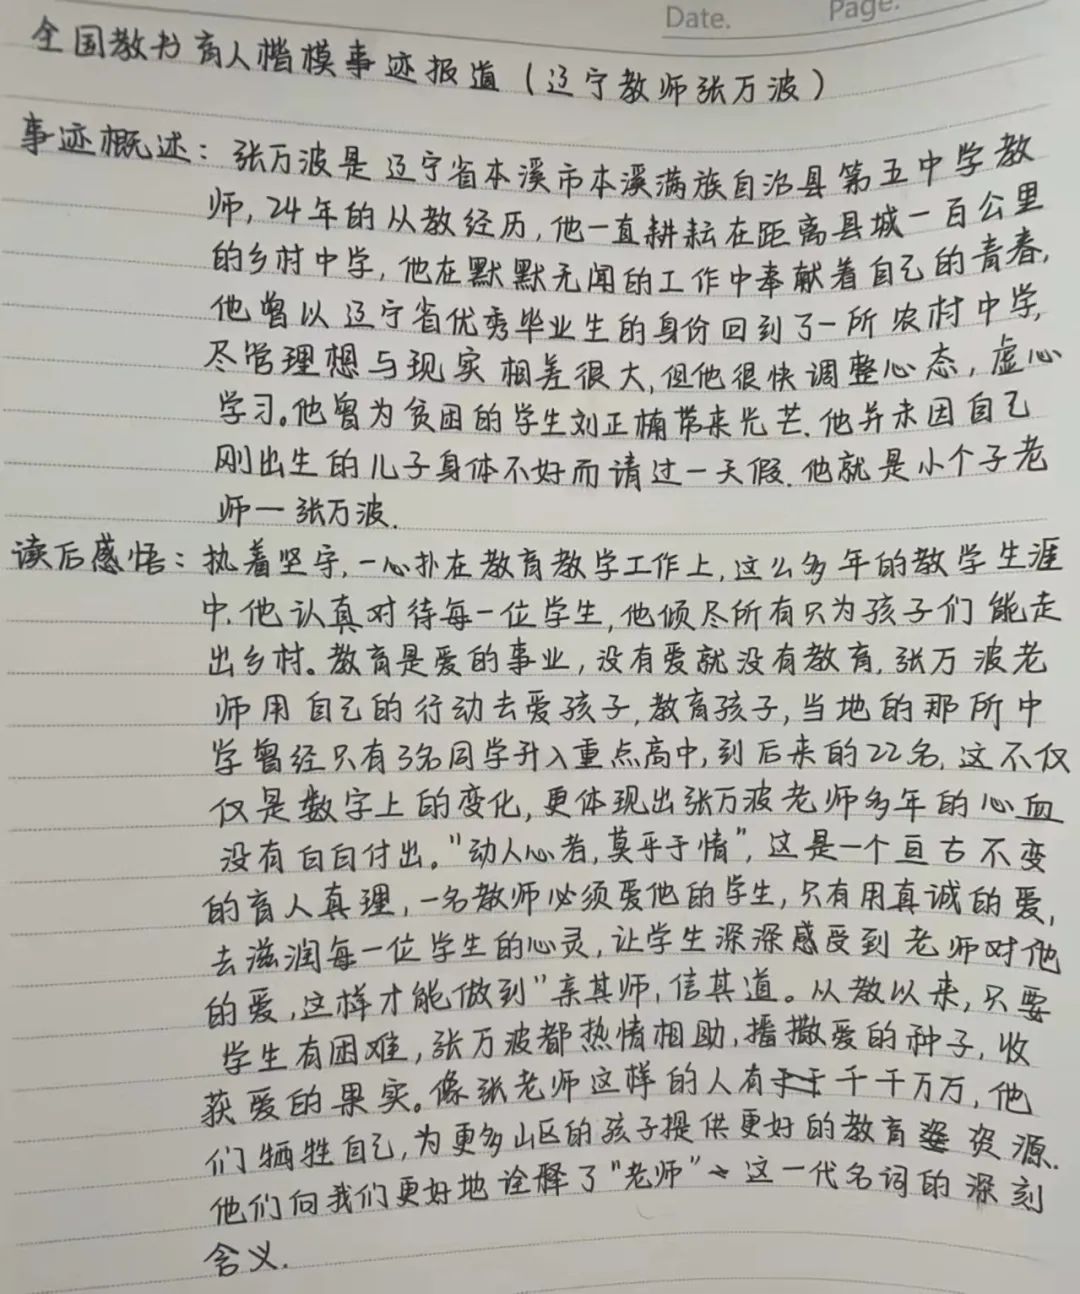 Date. Page.
全国教书育人楷模事迹报道（辽宁教师张万波）
事迹概述：张万波是辽宁省本溪市本溪满族自治县第五中学教
师，24年的从教经历，他一直耕耘在距离县城一百公里
的乡村中学，他在默默无闻的工作中奉献着自己的青春，
他曾以辽宁省优秀毕业生的身份回到了一所农村中学，
尽管理想与现实相差很大，但他很快调整心态，虚心
学习。他曾为贫困的学生刘正楠带来光芒．他并未因自己
刚出生的儿子身体不好而请过一天假．他就是小个子老
师一张万波．
读后感悟：执着坚守，一心扑在教育教学工作上，这么多年的教学生涯
中．他认真对待每一位学生，他倾尽所有只为孩子们能走
出乡村。教育是爱的事业，没有爱就没有教育．张万波老
师用自己的行动去爱孩子，教育孩子，当地的那所中
学曾经只有3名同学升入重点高中，到后来的22名，这不仅
仅是数字上的变化，更体现出张万波老师多年的心血
没有白白付出。"动人心者，莫乎于情"，这是一个亘古不变
的育人真理，一名教师必须爱他的学生，只有用真诚的爱，
去滋润每一位学生的心灵，让学生深深感受到老师对他
的爱，这样才能做到"亲其师，信其道。从教以来，只要
学生有困难，张万波都热情相助，播撒爱的种子，收
获爱的果实。像张老师这样的人有千千万万，他
们牺牲自己，为更多山区的孩子提供更好的教育资源．
他们向我们更好地诠释了"老师"这一代名词的深刻
含义．